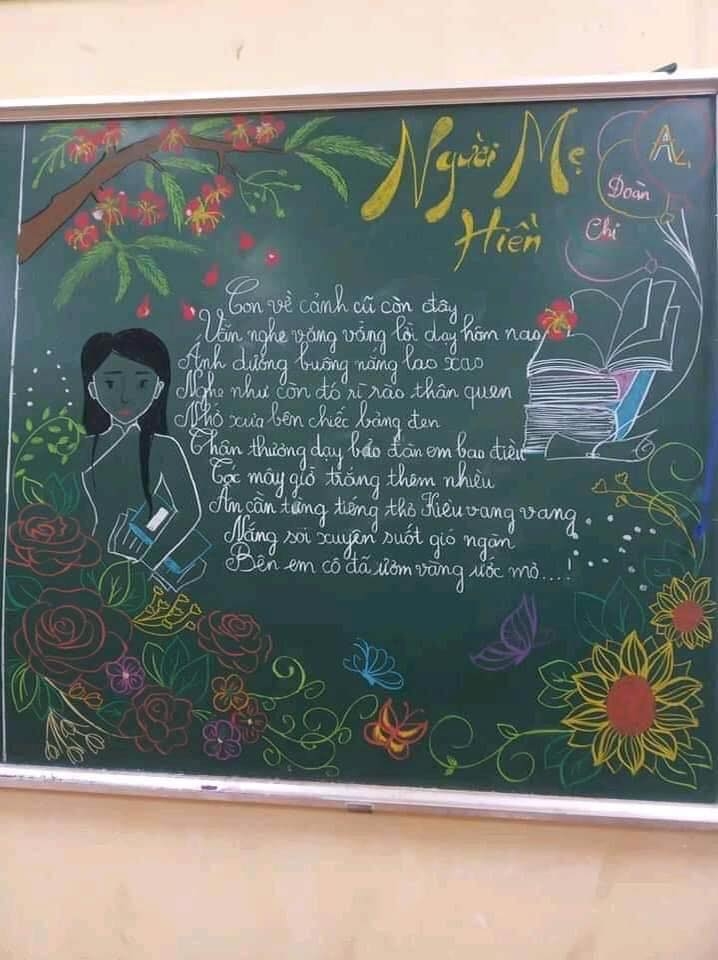 Người Mẹ
Hiền
Đoàn
Chi
Con về cảnh cũ còn đây
Vẫn nghe văng vẳng lời dạy hôm nao
Ánh dương buông nắng lao xao
Nghe như còn đó rì rào thân quen
Nhớ xưa bên chiếc bảng đen
Thân thương dạy bảo đàn em bao điều
Tóc mây giờ trắng thêm nhiều
Ân cần từng tiếng thơ Kiều vang vang
Nắng soi xuyên suốt gió ngàn
Bên em cô đã ươm vàng ước mơ....!